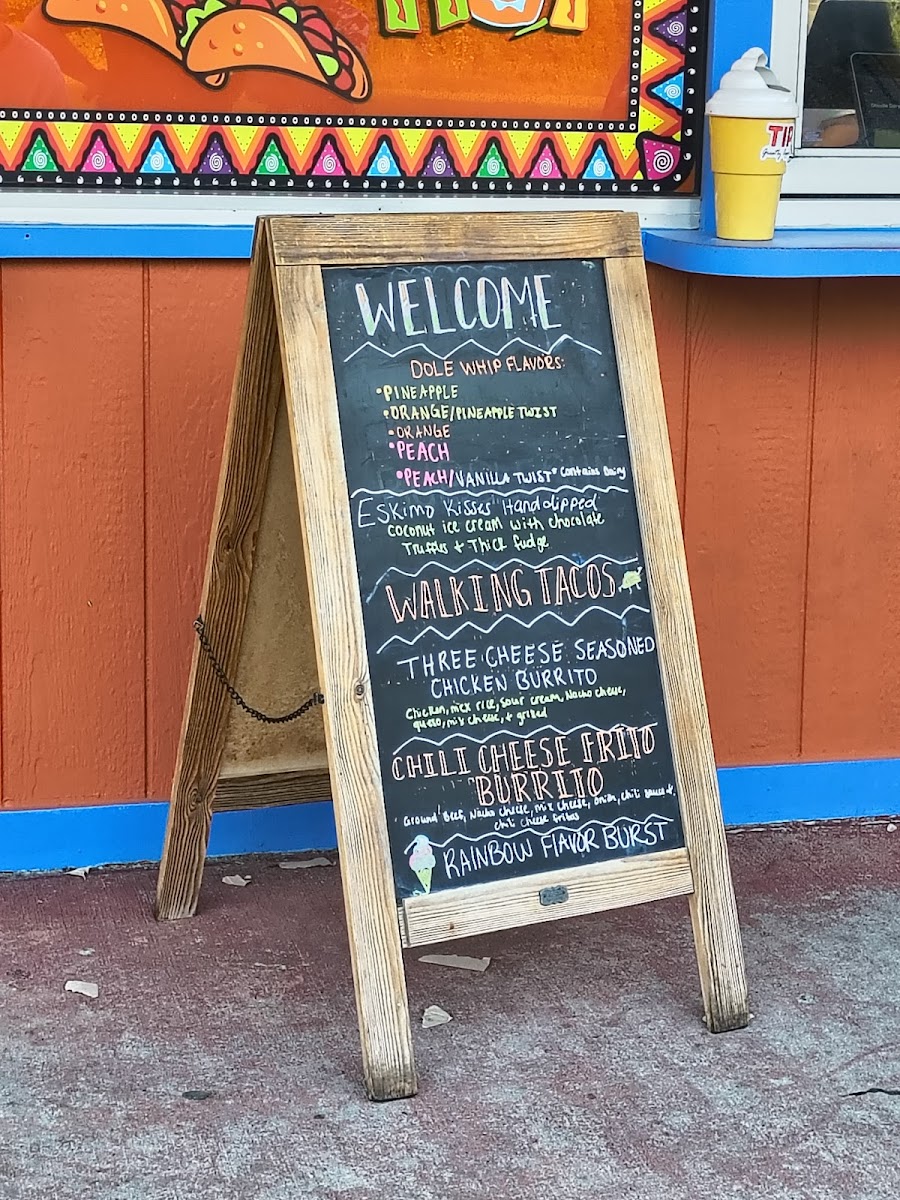 WELCOME
DOLE WHIP FLAVORS:
•PINEAPPLE
•ORANGE/PINEAPPLE TWIST
•ORANGE
•PEACH
•PEACH/VANILLA TWIST* Contains Dairy
ESKIMO KISSES "Hand dipped
coconut ice cream with chocolate
Truffles + Thick fudge
WALKING TACOS
THREE CHEESE SEASONED
CHICKEN BURRITO
Chicken, mex rice, sour cream, Nacho cheese,
queso, mix cheese, + grilled
CHILI CHEESE FRITO
BURRITO
Ground Beef, Nacho cheese, mix cheese, onion, chili sauce +
chili cheese fritos
RAINBOW FLAVOR BURST